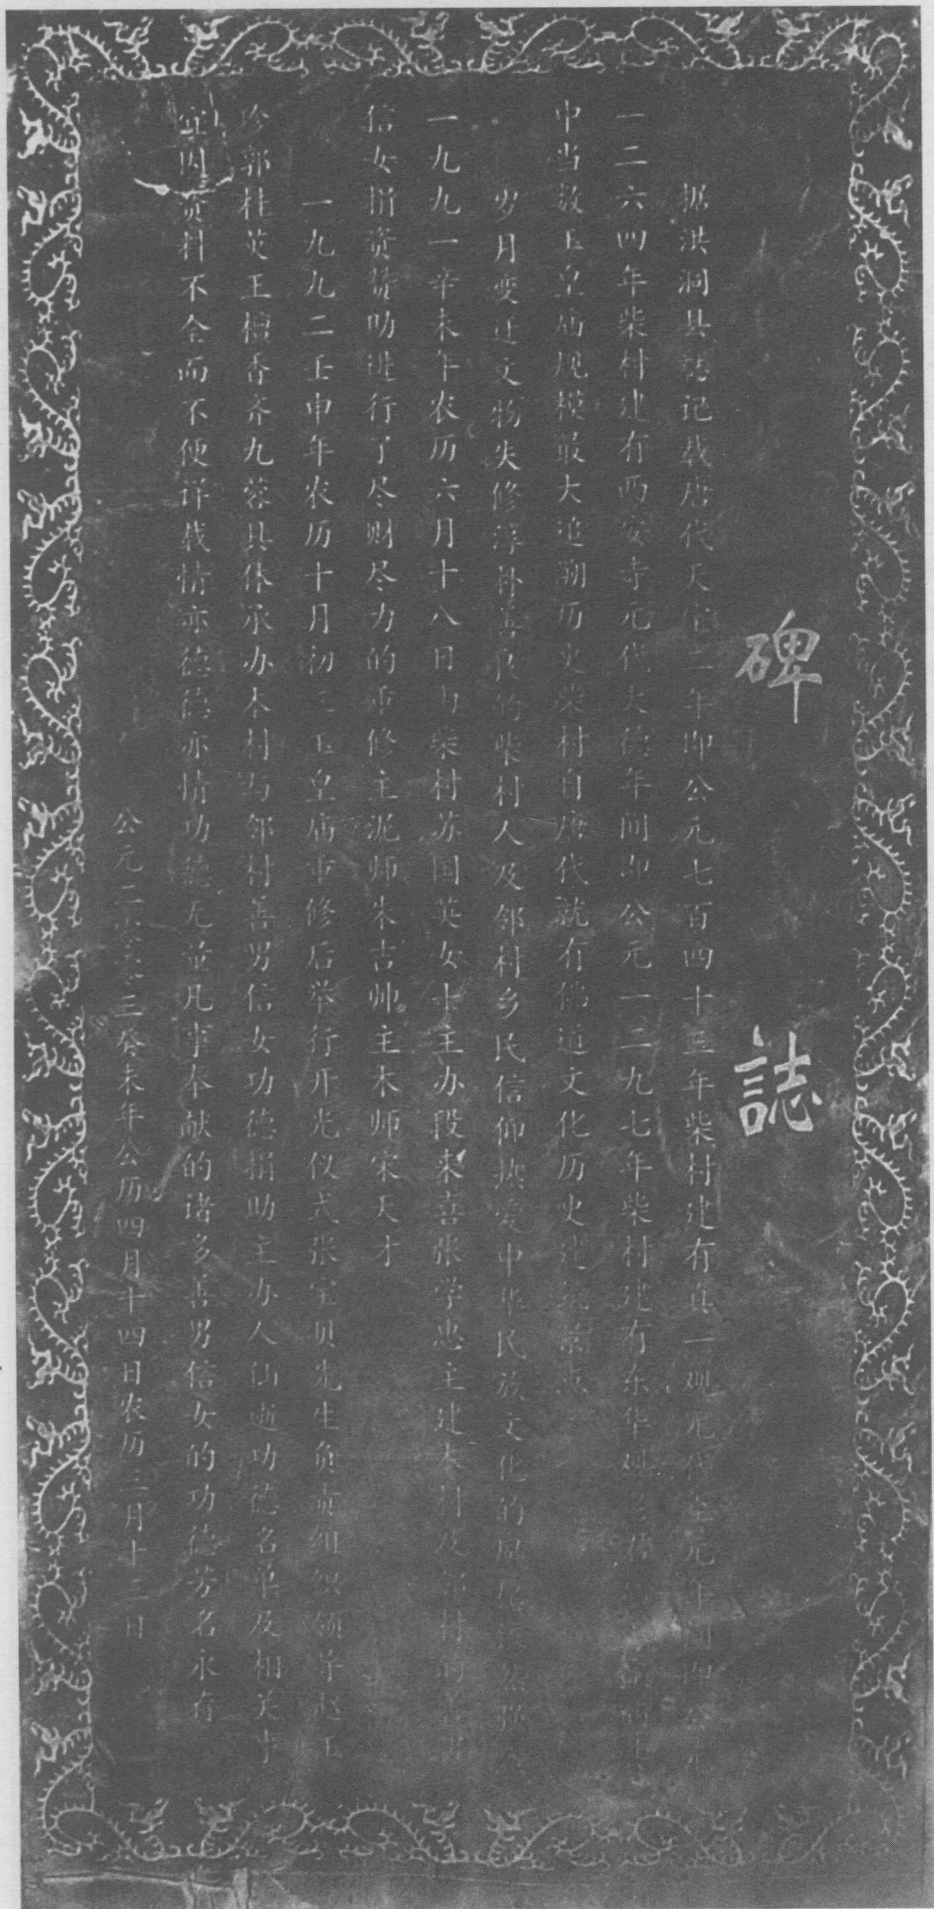 碑誌
据洪洞县誌记载唐代天宝二年即公元七百四十三年柴村建有真一观元代至元年间即公元
一二六四年柴村建有西安寺元代大德年间即公元一二九七年柴村建有东华观
中当数玉皇庙规模最大追溯历史柴村自唐代就有佛道文化历史建筑
岁月变迁文物失修淳朴善良的柴村人及邻村乡民信仰热爱中华民族文化的
一九九一辛未年农历六月十八日由柴村苏国英女士主办段来喜张学忠主建本村及邻村的
信女捐资赞助进行了尽财尽力的重修主泥师朱吉帅主木师宋天才
一九九二壬申年农历十月初三玉皇庙重修后举行开光仪式张宝贝先生负责组织领导赵玉
珍郭桂英王檀香齐九蓉具体承办本村与邻村善男信女功德捐助主办人仙逝功德名单及相关事
宜因资料不全而不便详载情亦德德亦情功德无量凡事奉献的诸多善男信女的功德芳名永存
公元二〇〇三癸未年公历四月十四日农历三月十三日